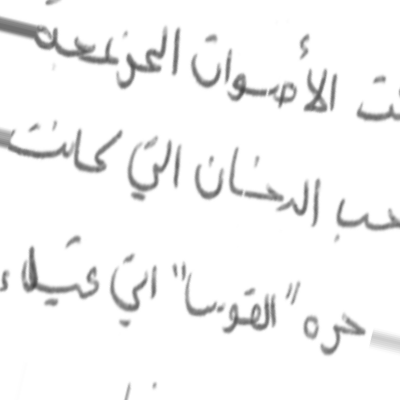 الأصوات المزعجة
حب الدخان التي كانت
حره "القوسا" التي